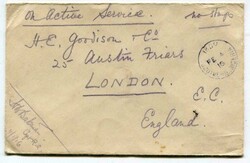 On Active Service
no stamps
H. E. Goodison & Co
25 Austin Friars
LONDON.
E. C.
England.